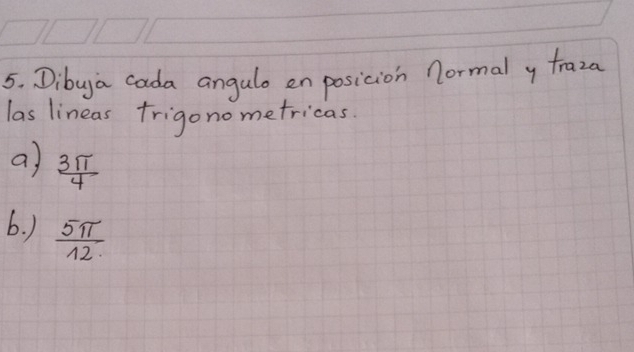 5. Dibuja cada angulo en posición normal y traza
las lineas trigonometricas.
a) 3π/4
b.) 5π/12.